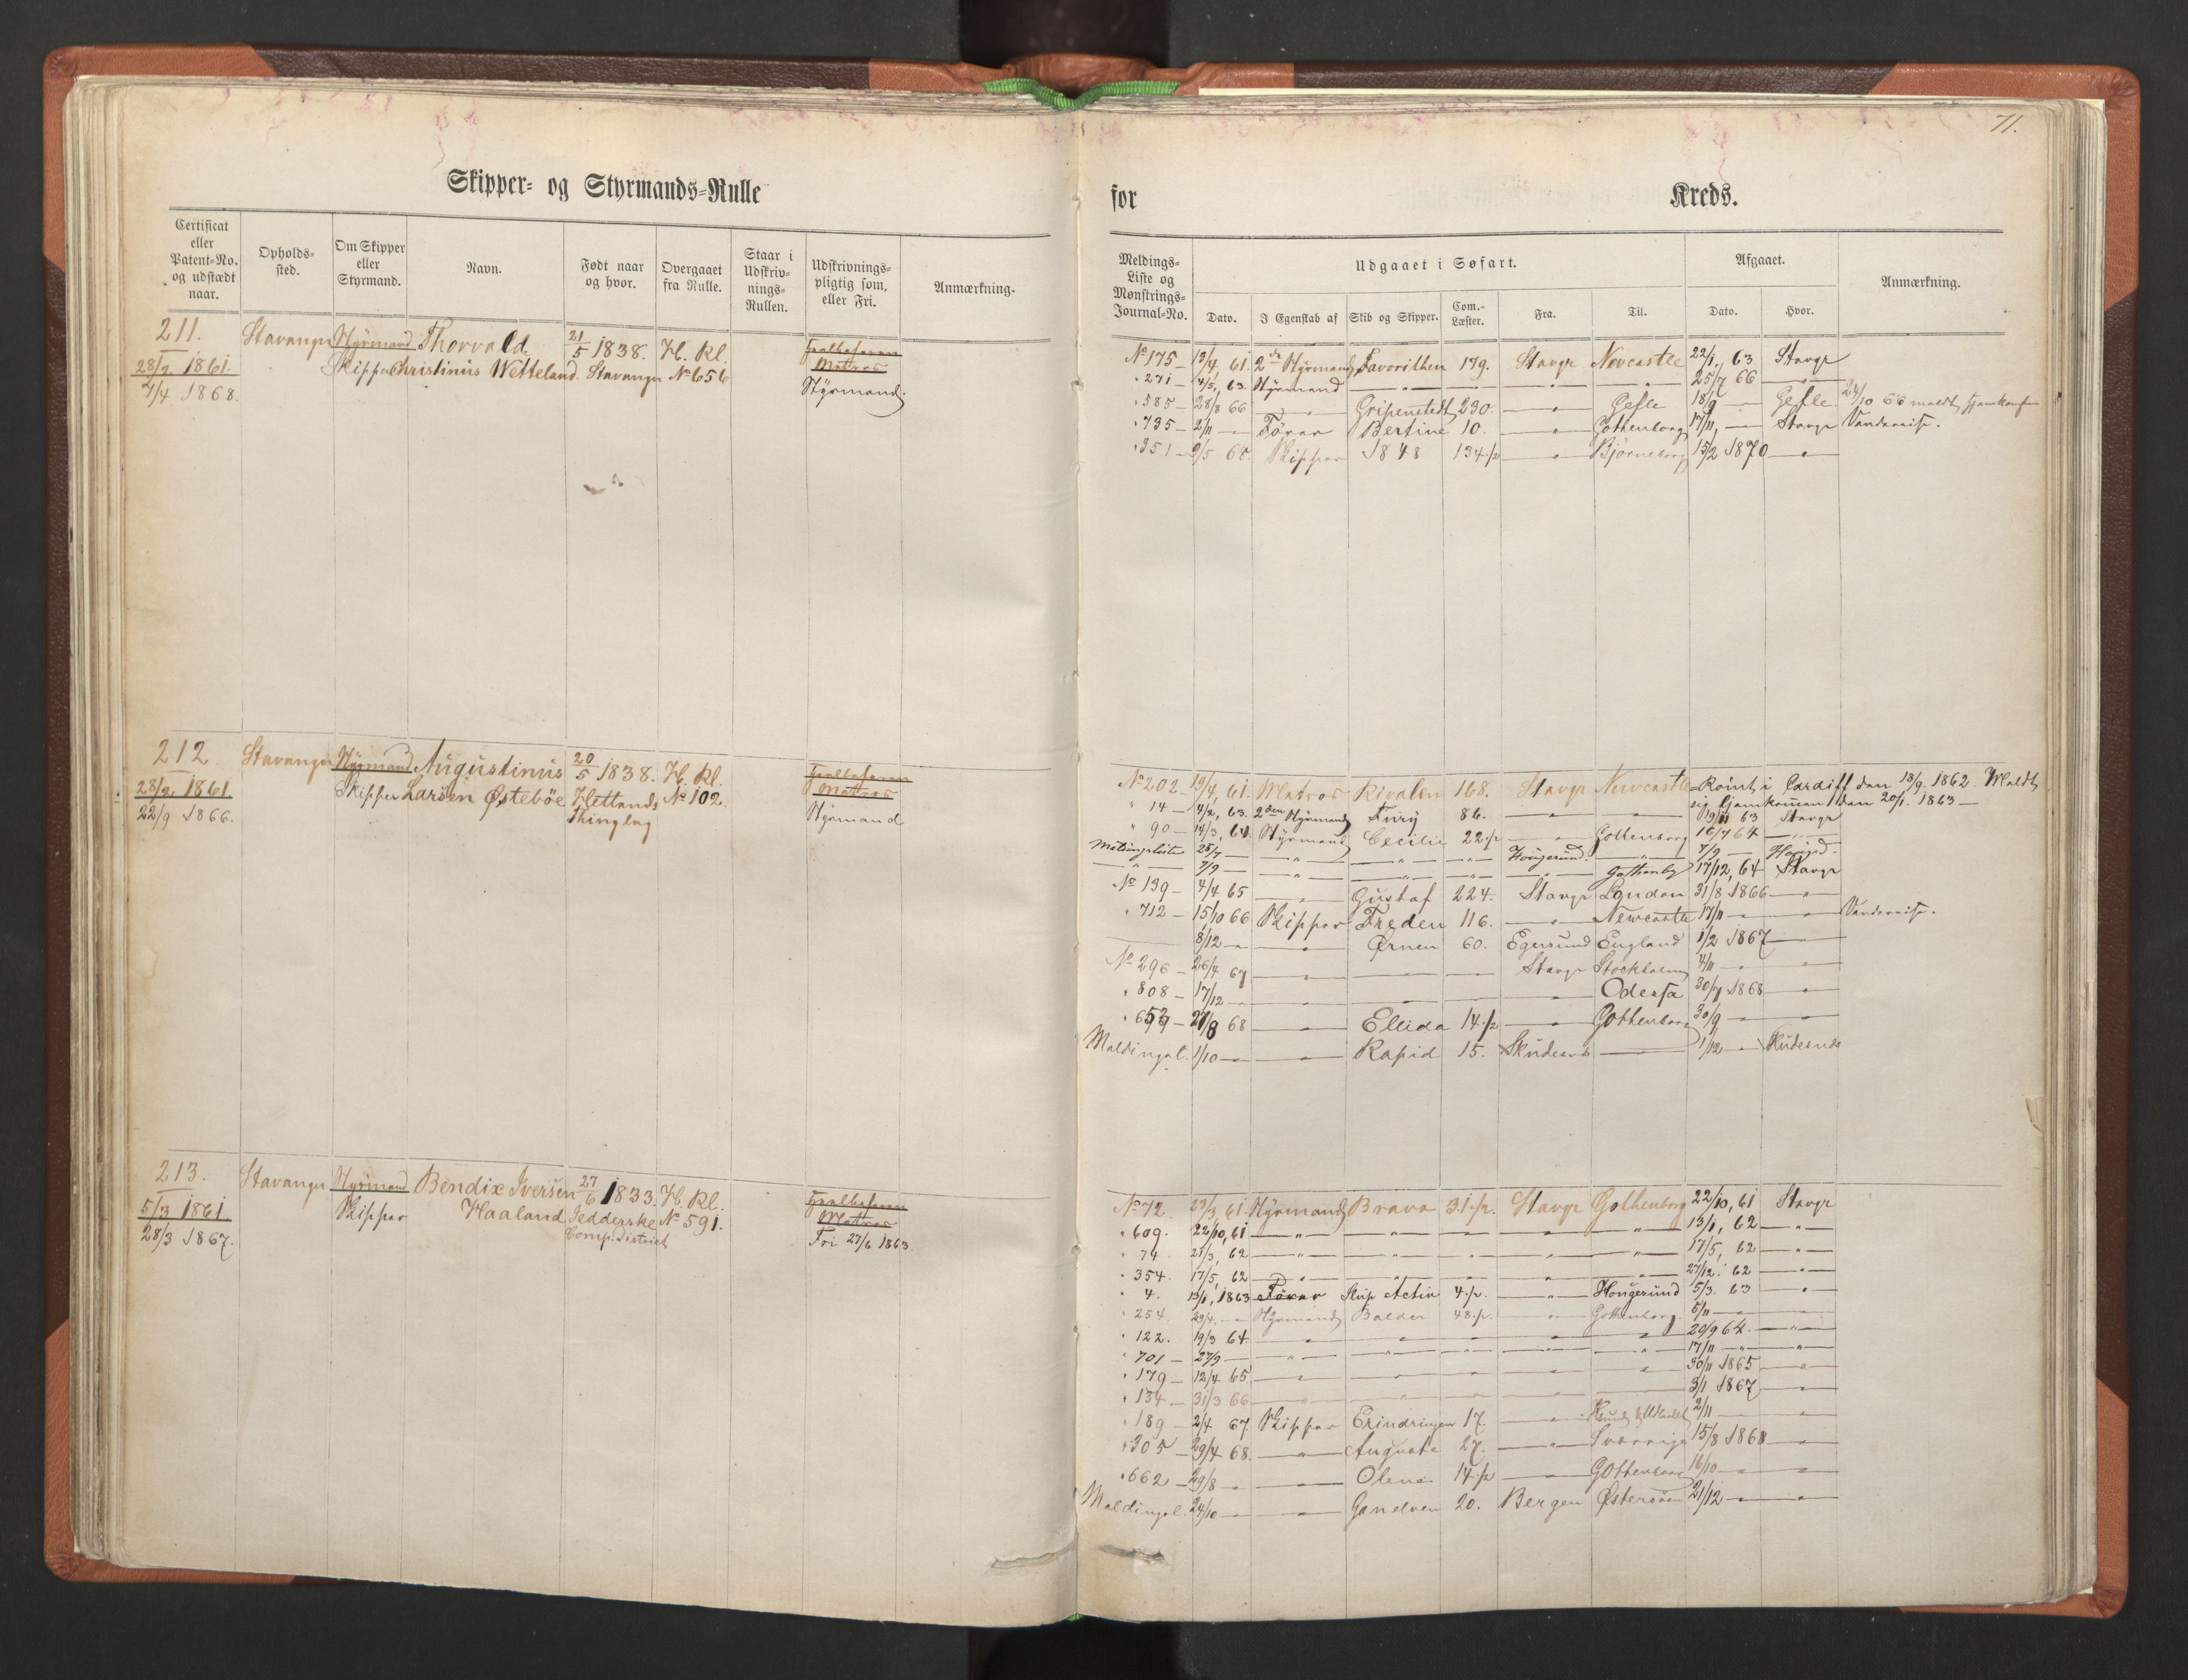 71.
Skipper- og Styrmands-Rulle
for Kreds.
Certificat eller Patent-No. og udstædt naar.
Opholds-sted.
Om Skipper eller Styrmand.
Navn.
Født naar og hvor.
Overgaaet fra Rulle.
Staar i Udskriv-nings-Rullen.
Udskrivnings-pligtig som, eller Fri.
Anmærkning.
Meldings-Liste og Mønstrings-Journal-No.
Udgaaet i Søfart.
Dato.
I Egenskab af
Skib og Skipper.
Com.-Læster.
Fra.
Til.
Afgaaet.
Dato.
Hvor.
Anmærkning.
211. Stavanger Styrmand Thorvald 21/5 1838. H. Kl.
28/2 1861. Skipper Christinus Wetteland. Stavanger No 656 Matros
4/4 1868. Styrmand.
No 175 - 13/4, 61. 2den Styrmand Favorithen 179. Stavgr Newcastle 22/1, 63 Stavgr
" 271 - 4/5, 63. Styrmand - " - " " 25/7 66 "
" 585 - 28/8 66 - Gripenstedt 230. " Gefle 18/9 - Gefle. 24/10 66 meldt hjemkomsten
" 735 - 2/11 - Fører Bertine 10. " Gothenborg 17/11, - Stavgr
" 351 - 9/5 68. Skipper 1848 134.½ " Bjørneborg 15/2 1870 - "
212 Stavanger Styrmand Augustinus 20/5 1838. H. Kl.
28/2 1861. Skipper Larsen Østebøe Hetlands No 102. Matros
22/9 1866. Thinglag Styrmand
No 202 - 19/4, 61. Matros Rivalen 168. Stavgr Newcastle Rømt i Cardiff den 18/9. 1862. Meldt
sig hjemkommen den 20/1. 1863 -
" 14 - 14/2, 63. 2den Styrmand Fury 86. - - 19/11 63 Stavgr
" 90 - 14/3, 64. Styrmand Cecilie 22.½ - " Gottenborg 16/7 64 - " -
Meldingsliste 25/7 - " - " - Hougesund. - " - 7/9 -
" 7/9 - " - " - " Gothenbg 17/12, 64 Stavgr
No 139 - 4/4 65 - " Gustaf 224. Stavgr London 31/8 1866 - "
" 712 - 15/10 66 Skipper Freden 116. - " Newcastle 17/11 - "
8/12 - " Ørnen 60. Egersund England 1/2 1867 - "
No 296 - 26/4 67 - " - Stavgr Stockholm 4/11 - "
" 808 - 17/12 - " - " Odessa 30/7 1868 - "
27/8 68 - " Ellida 14.½ - " Gothenborg 30/9 - "
Meldingsl. 1/10 - " Rapid 15. Skudesnes - 1/12 - Skudesnes
213. Stavanger Styrmand Bendix Iversen 27/6 1833. H. Kl.
5/3 1861. Skipper Haaland Jedderske No 591. Matros
28/3 1867. Comp. District Fri 27/6 1863.
No 72. 23/3, 61. Styrmand Bravo 31.½. Stavgr Gothenborg 22/10, 61 Stavgr
" 609. 22/10, 61 - " - " - " - " 13/1, 62 - " -
" 74 21/3, 62 - " - " - " - " 17/5, 62 - " -
" 354. 17/5, 62 - " - " - " - " 27/12. 62 - " -
" 4. 13/1, 1863 Fører Slup Activ 4.½. " Hougesund 5/3. 63 "
" 254. 29/4. - " Styrmand Balder 48.½. " Gothenborg. 5/11 - "
" 122. 19/3 64 - " - " - " - " 20/9 64. - " -
" 701 - 27/9 - " - " - " - " 17/11 - " - "
" 179 - 12/4 65 - " - " - " - " 30/11 1865 - "
" 134 - 31/3 66 - " - " - 3/1 1867 - "
" 189 - 2/4 67. Skipper Erindringen 17. - " 2/11 - "
" 305 - 29/4 68. - " Auguste 27. - " Sverrige 15/8 1868 - "
" 662 - 29/8 - " Olena 14.½ - " Gothenborg 16/10 - "
Meldingsl. 24/10 - " Gandven 20. Bergen Østersøen 21/12 - "